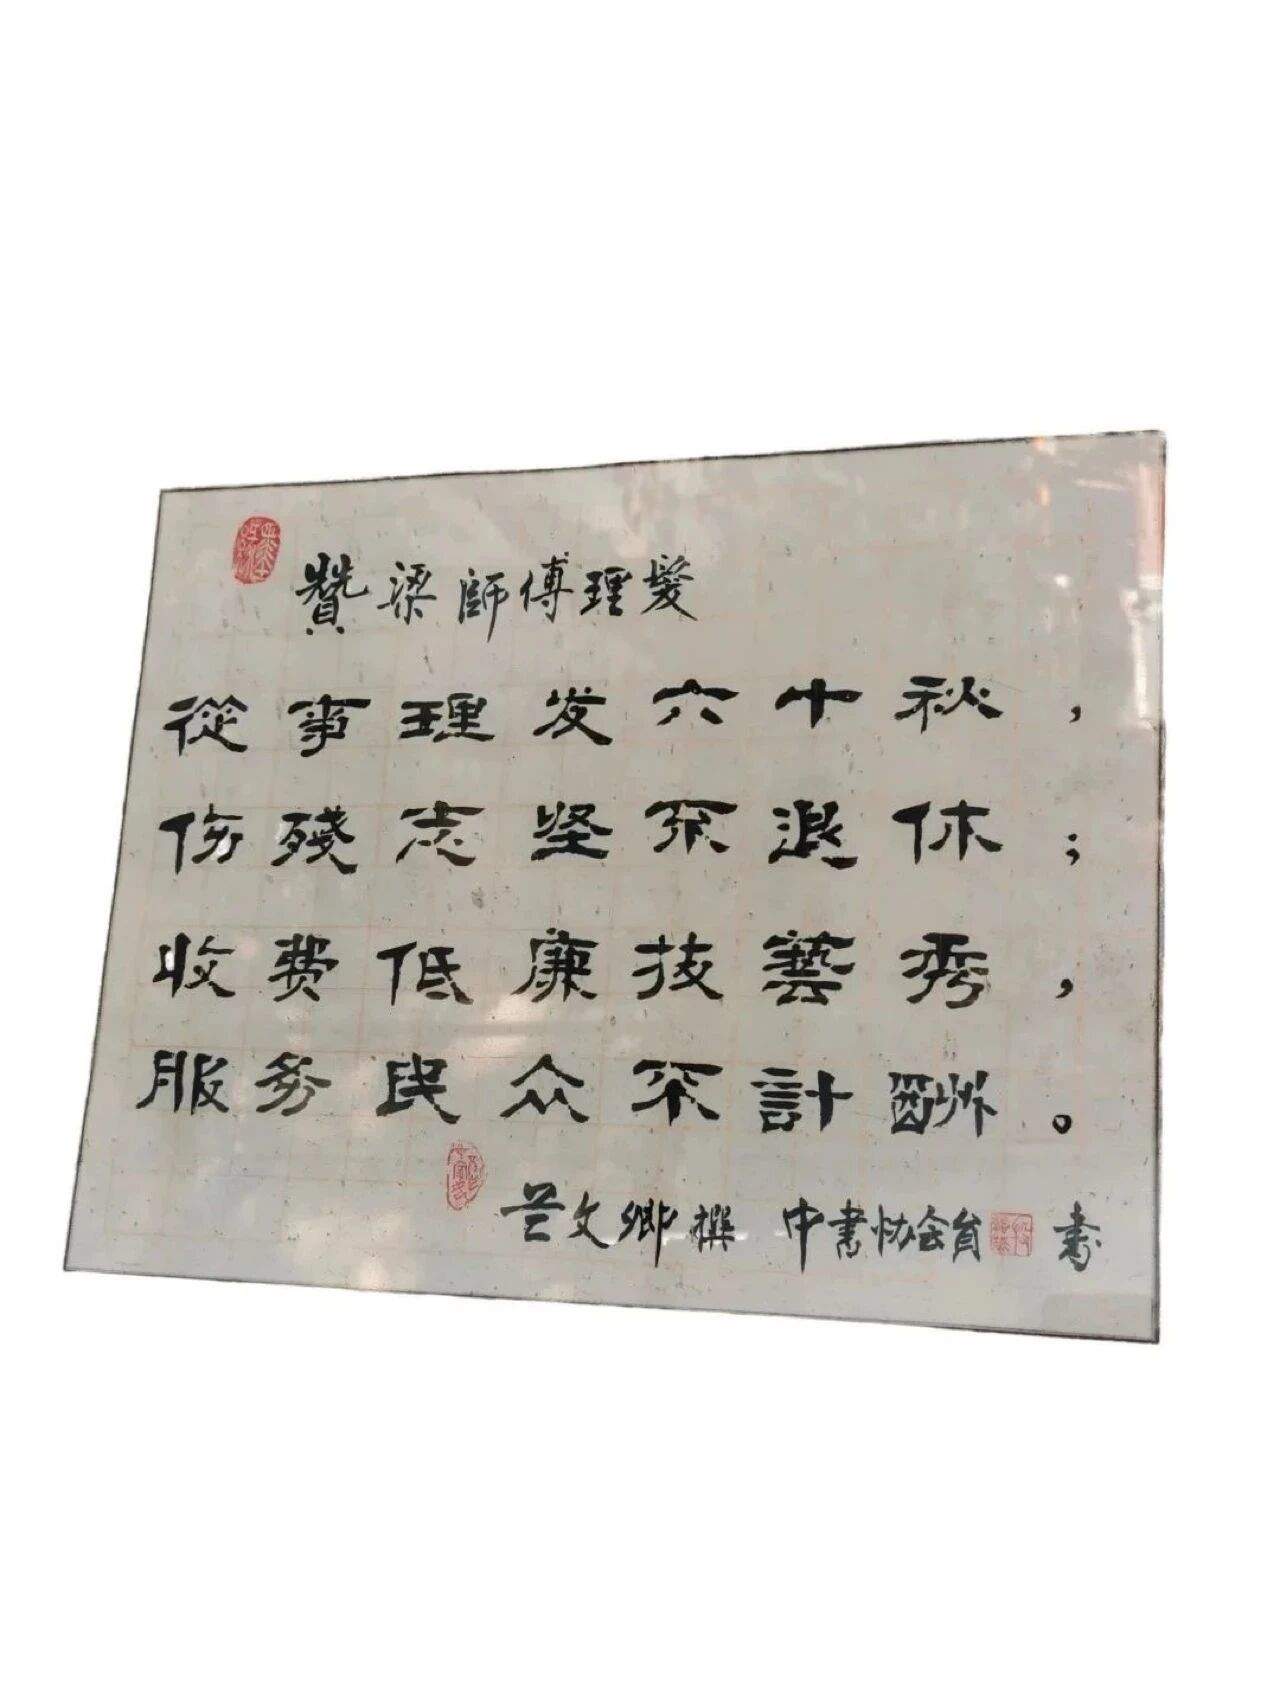 贊梁師傅理髮
從事理发六十秋，
伤殘志坚不退休；
收费低廉技藝秀，
服务民众不計酬。
文卿撰 中書协会員 書